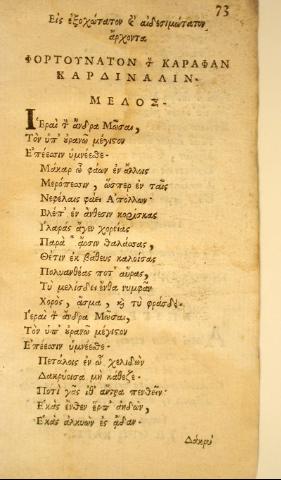 73
Εἰς ἐξοχώτατον & αἰδεσιμώτατον
ἄρχοντα
ΦΟΡΤΟΥΝΑΤΟΝ Τ̃ ΚΑΡΑΦΑΝ
ΚΑΡΔΙΝΑΛΙΝ.
ΜΕΛΟΣ.
Ἱεραὶ τ̃ ἄνδρα Μῶσαι,
Τὸν ὑπ' ὐρανῶ μέγιστον
Ἐπέεσσιν ὑμνέεσθε·
Μάκαρ ὦ φάων ἐν ἄλλοις
Μερόπεσσιν, ὥσπερ ἐν ταῖς
Νεφέλαις φάει Ἀπόλλων·
Βλέπ' ἐν ἄνθεσιν κορίσκας
Ἱλαρὰς ἄγεν χορείας
Παρὰ θαλάσσας,
Θέτιν ἐκ βάθευς καλοίσας
Πολυανθέας ποτ' αὔρας,
Τὺ μελίσδει ἔνθα νυμφᾶν
Χορὸς, ἆσμα, καὶ τὺ φράσδε·
Ἱεραὶ τ̃ ἄνδρα Μῶσαι,
Τὸν ὑπ' ὐρανῶ μέγιστον
Ἐπέεσσιν ὑμνέεσθε·
Πετάλοις ἐν ὦ χελιδὼν
Δακρύοισα μὴ κάθεζε·
Ποτὶ γᾶς ἄντρα πενθεῖν·
Ἑκὰς ἔνθεν ἕρπ' ἀηδὼν,
Ἑκὰς ἀλκυὼν ἐς ᾅδαν·
Δακρύ